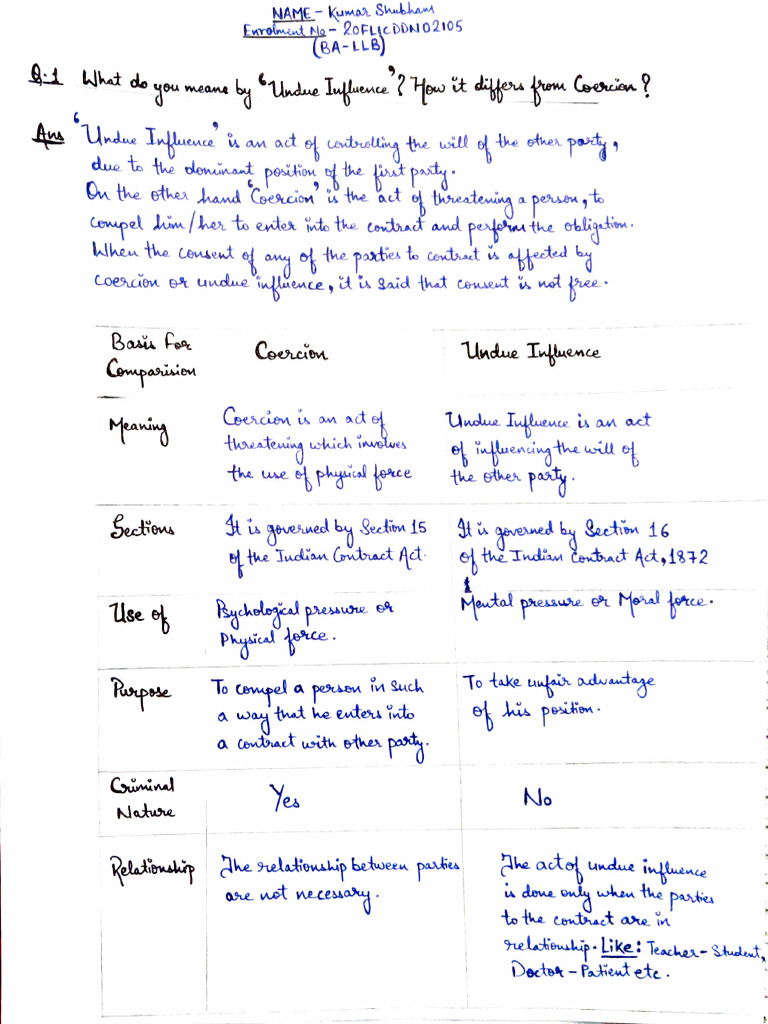 NAME - Kumar Shubham
Enrolment No - 20FLICDDN02105
(BA-LLB)
Q.1 What do you means by 'Undue Influence'? How it differs from Coercion?
Ans 'Undue Influence' is an act of controlling the will of the other party,
due to the dominant position of the first party.
On the other hand 'Coercion' is the act of threatening a person, to
compel him/her to enter into the contract and perform the obligation.
When the consent of any of the parties to contract is affected by
coercion or undue influence, it is said that consent is not free.
Basis For
Comparision
Coercion
Undue Influence
Meaning
Coercion is an act of
threatening which involves
the use of physical force
Undue Influence is an act
of influencing the will of
the other party.
Sections
It is governed by Section 15
of the Indian Contract Act.
It is governed by Section 16
of the Indian Contract Act, 1872
Use of
Psychological pressure or
Physical force.
Mental pressure or Moral force.
Purpose
To compel a person in such
a way that he enters into
a contract with other party.
To take unfair advantage
of his position.
Criminal
Nature
Yes
No
Relationship
The relationship between parties
are not necessary.
The act of undue influence
is done only when the parties
to the contract are in
relationship. Like: Teacher-Student,
Doctor-Patient etc.